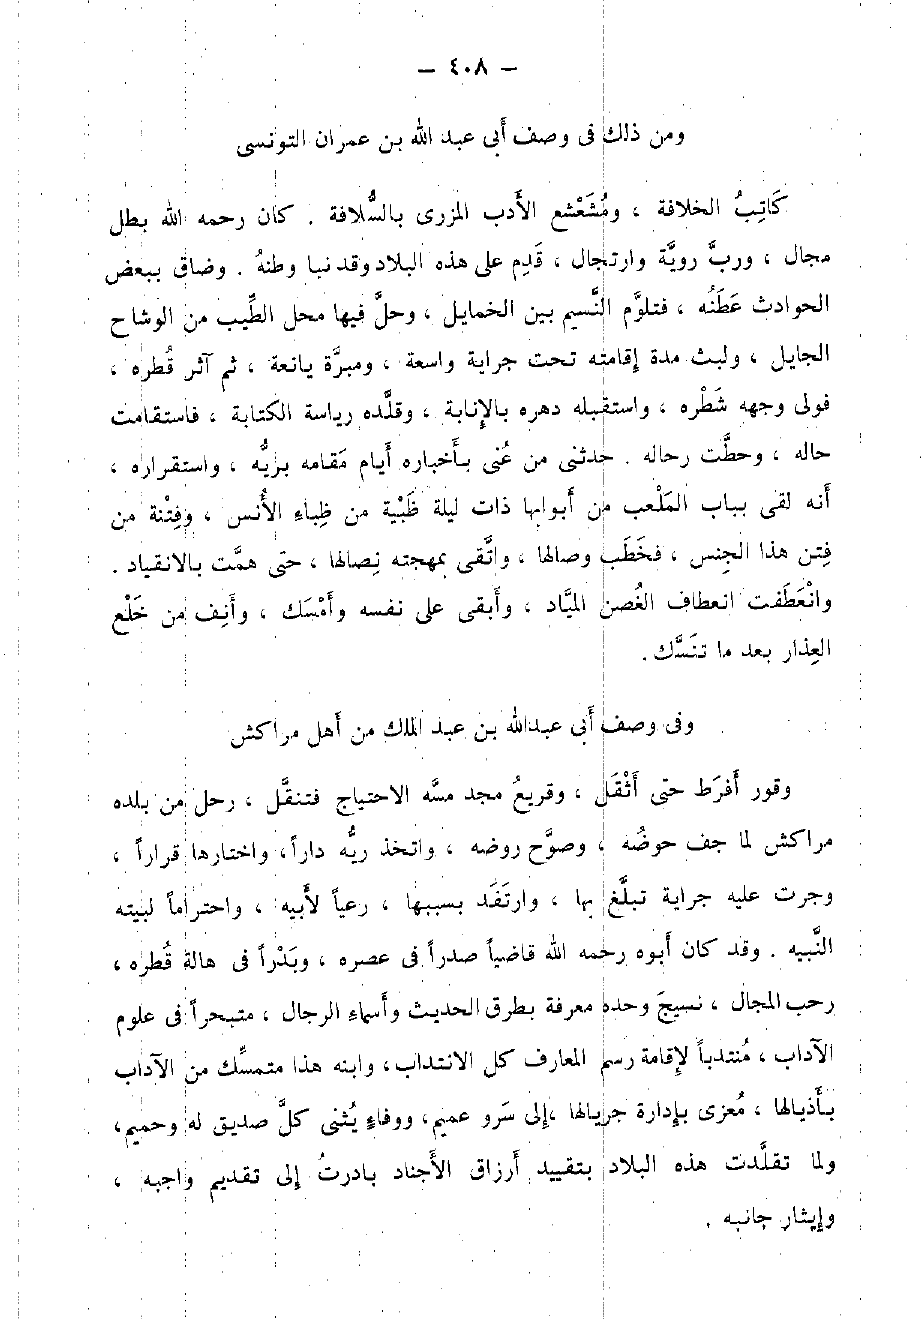 — ٤٠٨ —
ومن ذلك فى وصف أبى عبد الله بن عمران التونسى
كَاتِبُ الخلافة ، ومُشَعْشع الأدب المزرى بالسُّلافة . كان رحمه الله بطل
مجال ، وربَّ رويَّة وارتجال ، قَدِم على هذه البلاد وقد نبا وطنهُ . وضاق ببعض
الحوادث عَطَنُه ، فتلوَّم النَّسيم بين الخمايل ، وحلَّ فيها محل الطِّيب من الوشاح
الجايل ، ولبث مدة إقامته تحت جراية واسعة ، ومبرَّة يانعة ، ثم آثر قُطره ،
فولى وجهه شَطْره ، واستقبله دهره بالإنابة ، وقلَّده رياسة الكتابة ، فاستقامت
حاله ، وحطَّت رحاله . حدثنى من عُنى بأخباره أيام مَقامه بريُّه ، واستقراره ،
أنه لقى بباب المَلْعب من أبوابها ذات ليلة ظَبْية من ظِباء الأُنس ، وفِتْنة من
فِتن هذا الجِنس ، فخَطَب وصالها ، واتَّقى بمهجته نِصالها ، حتى همَّت بالانقياد .
وانْعَطَفت انعطاف الغُصن الميَّاد ، وأبقى على نفسه وأمْسَك ، وأنِف من خَلْع
العِذار بعد ما تنَسَّك .
وفى وصف أبى عبدالله بن عبد الملك من أهل مراكش
وقور أفرَط حتى أثْقَل ، وقريعُ مجد مسَّه الاحتياج فتنقَّل ، رحل من بلده
مراكش لما جف حوضُه ، وصوَّح روضه ، واتخذ ريُّه داراً، واختارها قراراً ،
وجرت عليه جراية تبلَّغ بها ، وارتَفَد بسببها ، رعياً لأبيه ، واحتراماً لبيته
النَّبيه . وقد كان أبوه رحمه الله قاضياً صدراً فى عصره ، وبَدْراً فى هالة قُطره ،
رحب المجال ، نسيجَ وحده معرفة بطرق الحديث وأسماء الرجال ، متبحراً فى علوم
الآداب ، مُنتدباً لإقامة رسم المعارف كل الانتداب، وابنه هذا متمسِّك من الآداب
بأذيالها ، مُعزى بإدارة جريالها ،إلى سَرو عميم، ووفاءٍ يُثنى كلَّ صديق له وحميم،
ولما تقلَّدت هذه البلاد بتقييد أرزاق الأجناد بادرتُ إلى تقديم واجبه ،
وإيثار جانبه .